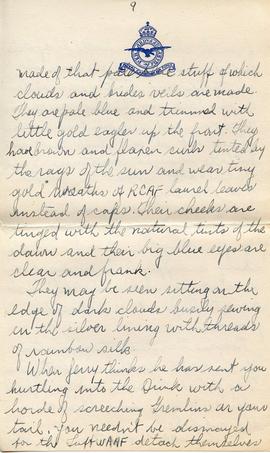 9
made of that stuff of which
clouds and brides veils are made.
They are pale blue and trimmed with
little gold eagles up the front. They
had brown and flaxen curls tinted by
the rays of the sun and wear tiny
gold wreaths of RCAF laurel leaves
instead of caps. Their cheeks are
tinged with the natural tints of the
dawn and their big blue eyes are
clear and frank.
They may be seen sitting on the
edge of dark clouds busily sewing
in the silver lining with threads
of rainbow silk.
When Jerry thinks he has sent you
hurtling into the Drink with a
horde of screeching Gremlins on your
tail, you needn't be dismayed
for the LuftWAAF detach themselves